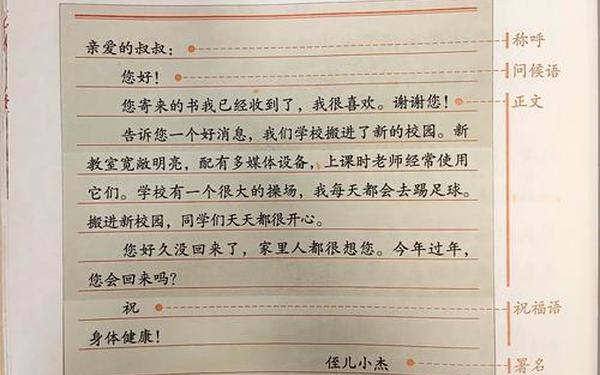 亲爱的叔叔： 称呼
您好！ 问候语
您寄来的书我已经收到了，我很喜欢。谢谢您！ 正文
告诉您一个好消息，我们学校搬进了新的校园。新
教室宽敞明亮，配有多媒体设备，上课时老师经常使用
它们。学校有一个很大的操场，我每天都会去踢足球。
搬进新校园，同学们天天都很开心。
您好久没回来了，家里人都很想您。今年过年，
您会回来吗？
祝 祝福语
身体健康！
侄儿小杰 署名